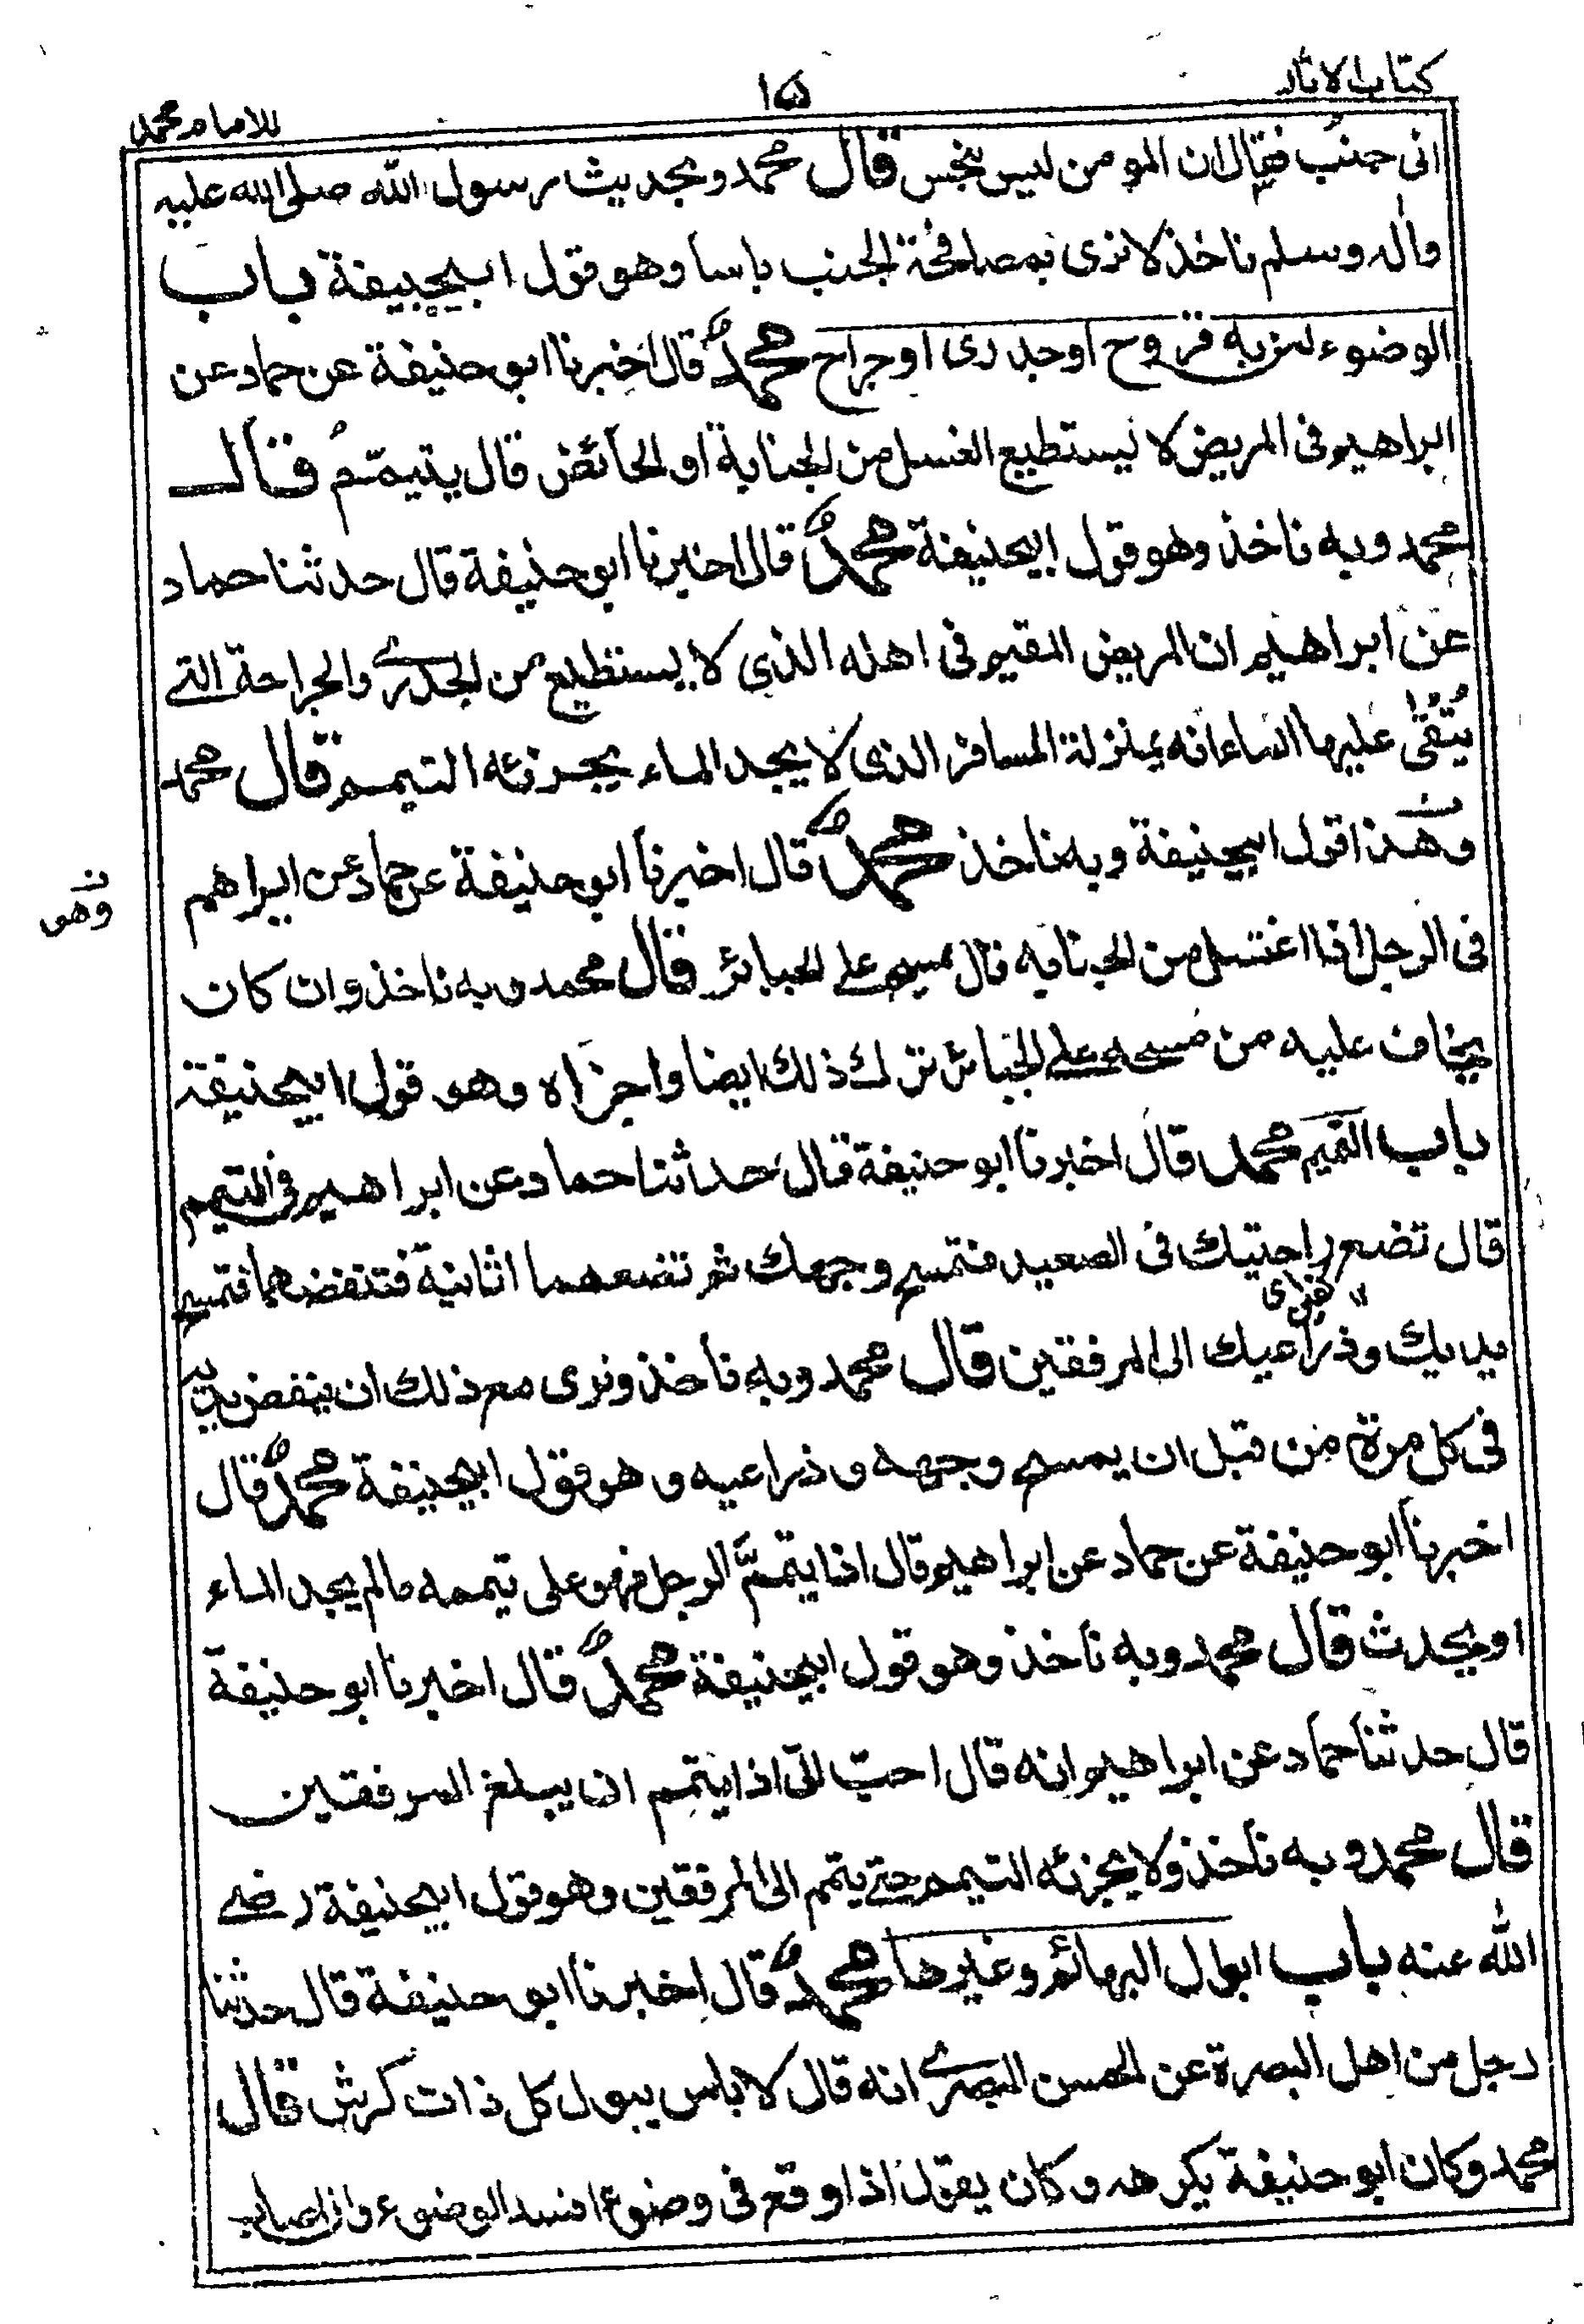 كتاب الاثار
١٥
للامام محمد
انى جنب فقال ان المومن ليس بنجس قال محمد وبحديث رسول الله صلى الله عليه
واله وسلم ناخذ لا نرى بمصافحة الجنب باسا وهو قول ابيحنيفة باب
الوضوء لمن به قروح اوجدرى اوجراح محمد قال اخبرنا ابو حنيفة عن حماد عن
ابراهيم فى المريض لا يستطيع الغسل من الجنابة او الحائض قال يتيمم قال
محمد وبه ناخذ وهو قول ابيحنيفة محمد قال اخبرنا ابو حنيفة قال حدثنا حماد
عن ابراهيم ان المريض المقيم فى اهله الذى لا يستطيع من الجدرى والجراحة التى
يتقى عليها الماء انه بمنزلة المسافر الذى لا يجد الماء يجزئه التيمم قال محمد
وهذا قول ابيحنيفة وبه ناخذ محمد قال اخبرنا ابو حنيفة عن حماد عن ابراهيم
ن وهو
فى الرجل اذا اغتسل من الجنابه قال يمسح على الجبائر قال محمد وبه ناخذ وان كان
يخاف عليه من مسحه على الجبائر ترك ذلك ايضا واجزاه وهو قول ابيحنيفة
باب التيمم محمد قال اخبرنا ابو حنيفة قال حدثنا حماد عن ابراهيم فى التيمم
قال تضع راحتيك فى الصعيد فتمسح وجهك ثم تضعهما الثانية فتنفضهما فتمسح
يديك وذراعيك الى المرفقين قال محمد وبه ناخذ ونرى مع ذلك ان ينفض يديه
فى كل مرة من قبل ان يمسح وجهه وذراعيه وهو قول ابيحنيفة محمد قال
اخبرنا ابو حنيفة عن حماد عن ابراهيم قال اذا يتمم الرجل فهو على تيممه مالم يجد الماء
اويحدث قال محمد وبه ناخذ وهو قول ابيحنيفة محمد قال اخبرنا ابو حنيفة
قال حدثنا حماد عن ابراهيم انه قال احب الى اذا يتمم ان يبلغ المرفقين
قال محمد وبه ناخذ ولا يجزئه التيمم حتى يتمم الى المرفقين وهو قول ابيحنيفة رضى
الله عنه باب ابوال البهائم وغيرها محمد قال اخبرنا ابو حنيفة قال حدثنا
رجل من اهل البصرة عن الحسن البصرى انه قال لا باس ببول كل ذات كرش قال
محمد وكان ابو حنيفة يكرهه وكان يقول اذا وقع فى وضوء افسد الوضوء وان اصاب